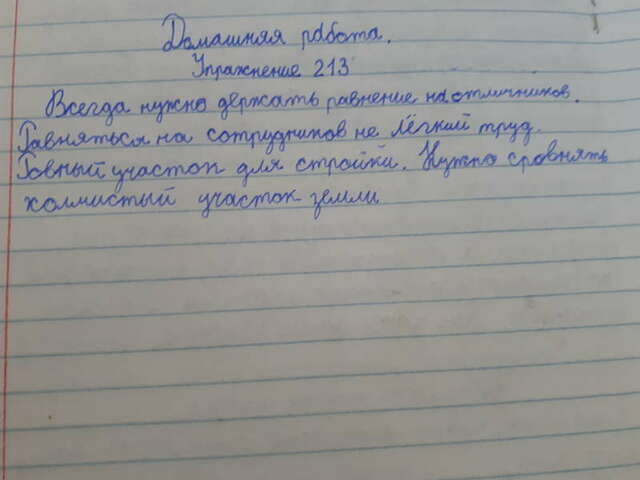 Домашняя работа.
Упражнение 213
Всегда нужно держать равнение на отличников.
Равняться на сотрудников не лёгкий труд.
Ровный участок для стройки. Нужно сровнять
холмистый участок земли.